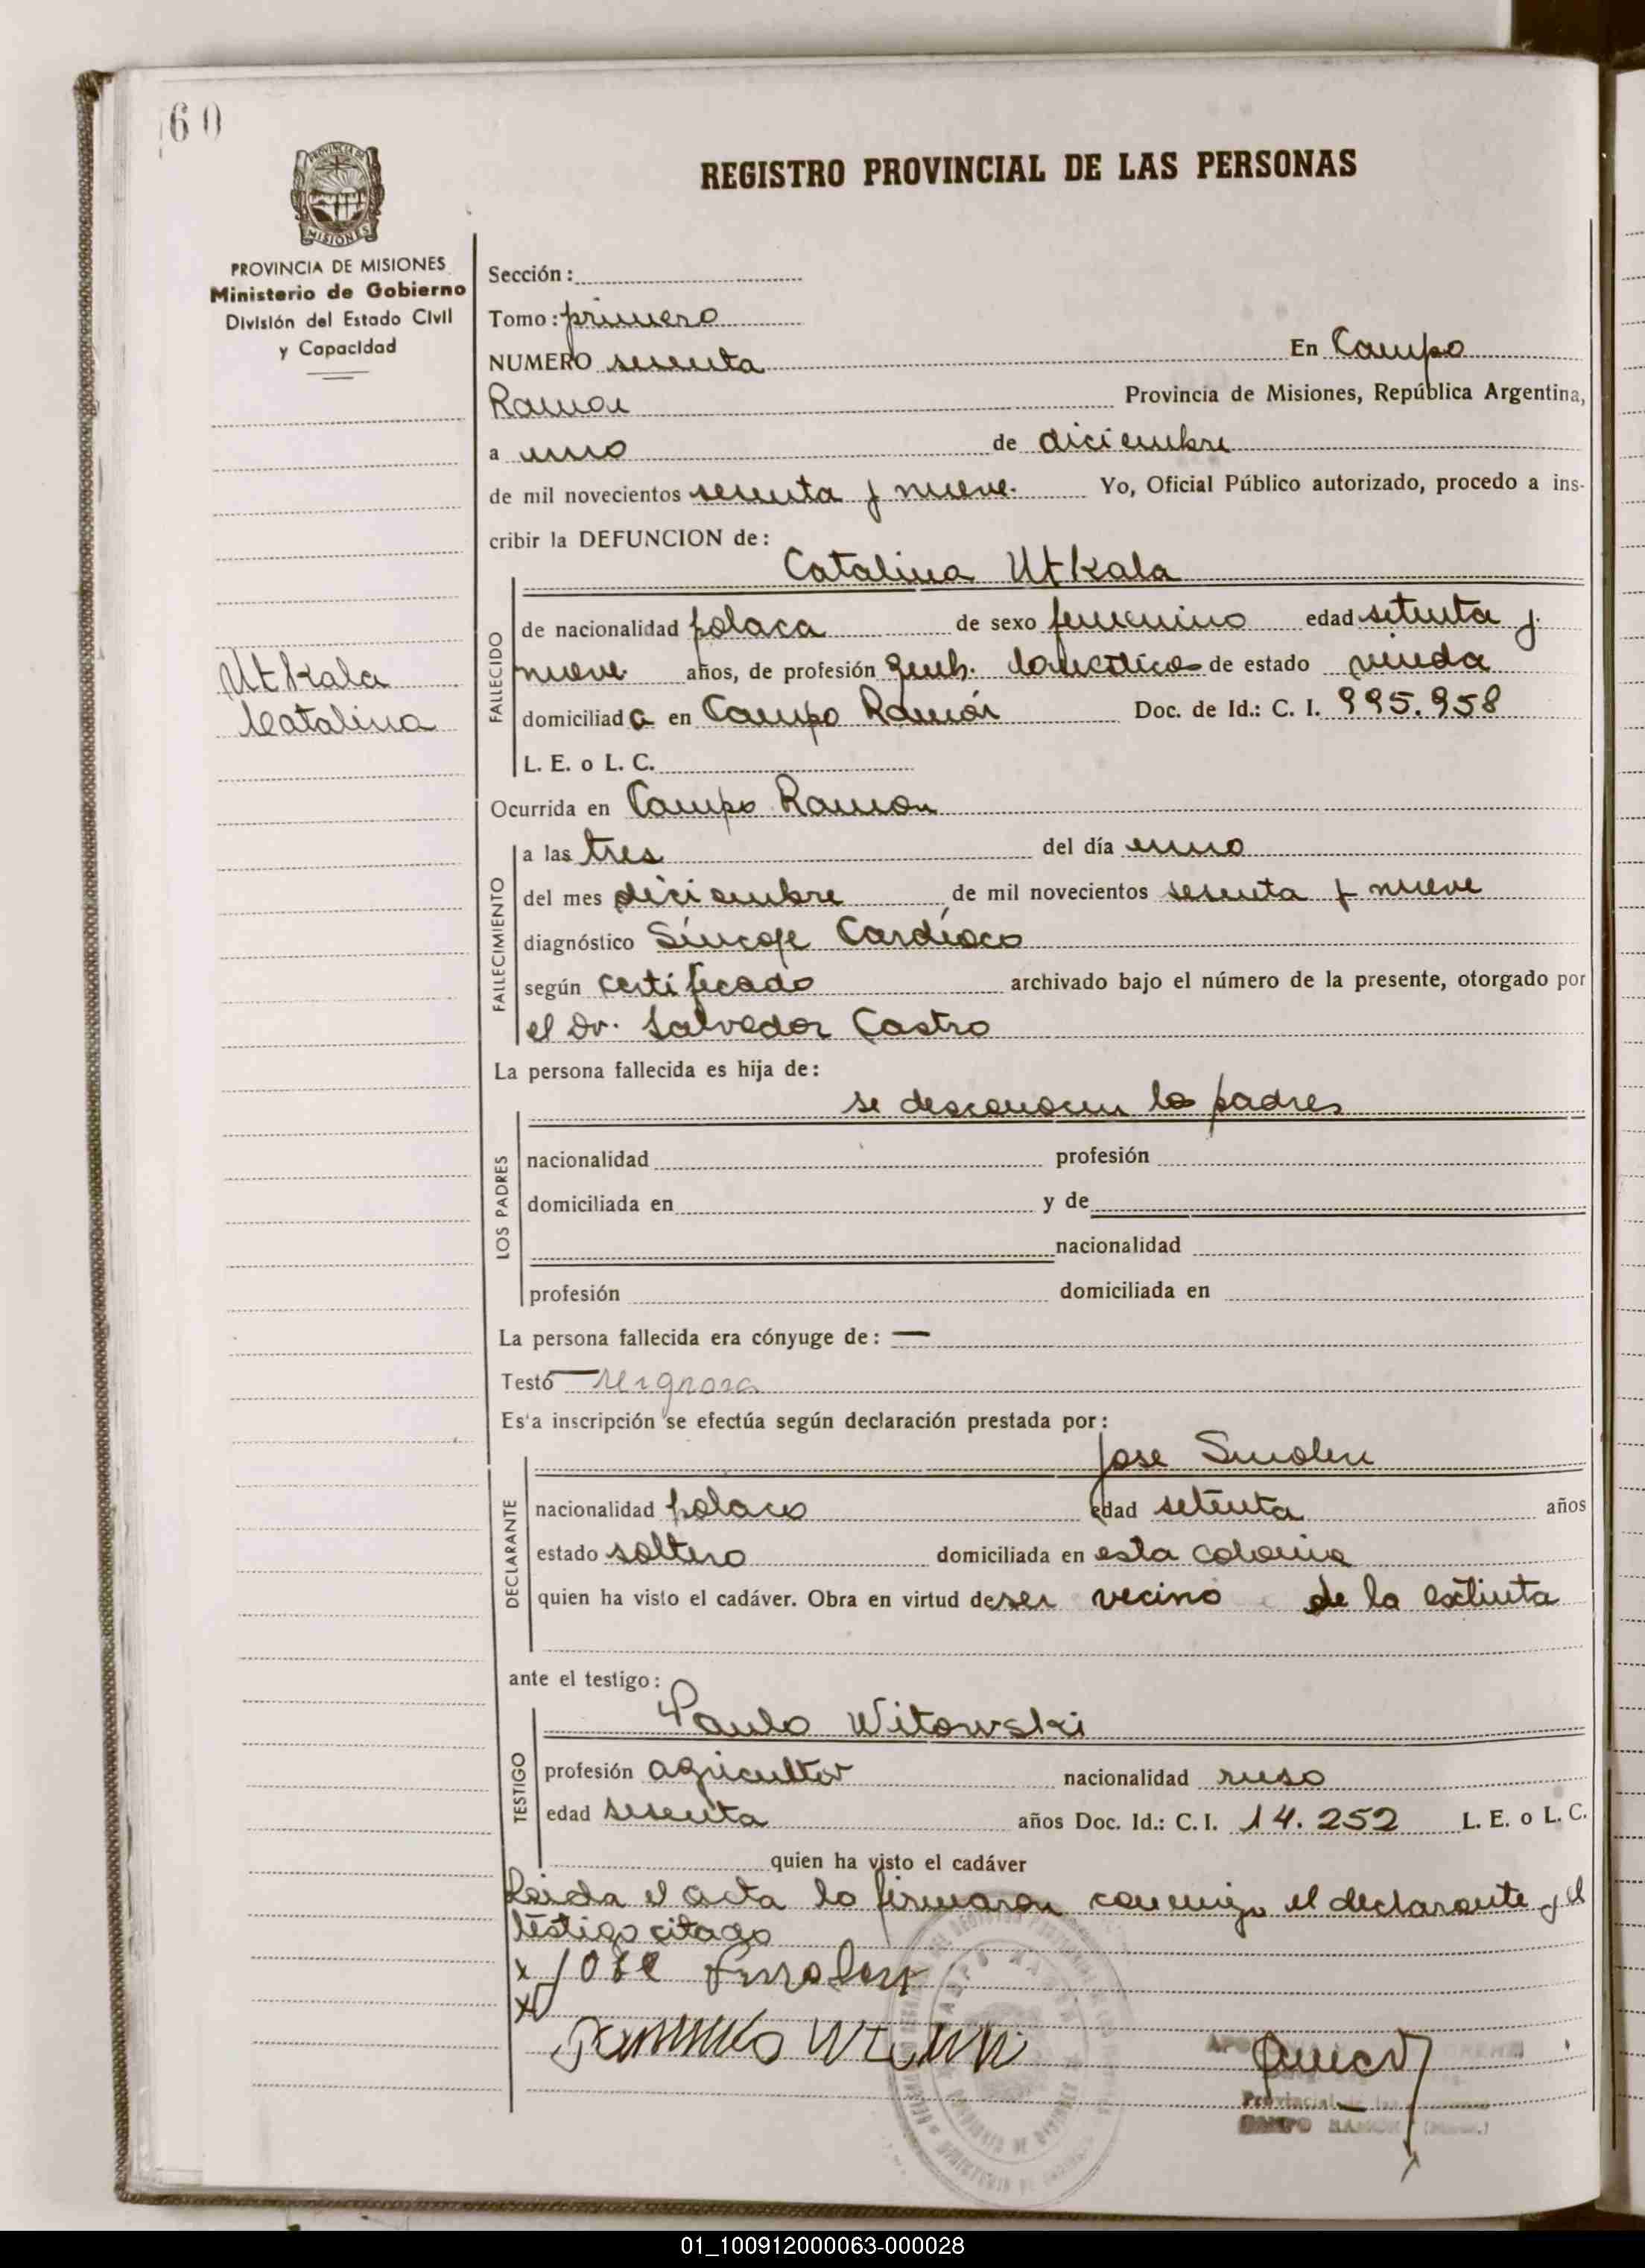 60
REGISTRO PROVINCIAL DE LAS PERSONAS
PROVINCIA DE MISIONES
PROVINCIA DE MISIONES
Ministerio de Gobierno
División del Estado Civil
y Capacidad
Utkala
Catalina
Sección:
Tomo: primero
NUMERO sesenta En Campo
Ramon Provincia de Misiones, República Argentina,
a uno de diciembre
de mil novecientos sesenta y nueve. Yo, Oficial Público autorizado, procedo a ins-
cribir la DEFUNCION de:
Catalina Utkala
FALLECIDO
de nacionalidad polaca de sexo femenino edad setenta y
nueve años, de profesión queh. domesticos de estado viuda
domiciliada en Campo Ramón Doc. de Id.: C. I. 995.958
L. E. o L. C.
Ocurrida en Campo Ramon
FALLECIMIENTO
a las tres del día uno
del mes diciembre de mil novecientos sesenta y nueve
diagnóstico Síncope Cardíaco
según certificado archivado bajo el número de la presente, otorgado por
el Dr. Salvador Castro
La persona fallecida es hija de:
se desconocen los padres
LOS PADRES
nacionalidad profesión
domiciliada en y de
nacionalidad
profesión domiciliada en
La persona fallecida era cónyuge de: —
Testó
Esta inscripción se efectúa según declaración prestada por:
Jose Smolen
DECLARANTE
nacionalidad polaco edad setenta años
estado soltero domiciliada en esta colonia
quien ha visto el cadáver. Obra en virtud de ser vecino de la extinta
ante el testigo:
Paulo Witowski
TESTIGO
profesión agricultor nacionalidad ruso
edad sesenta años Doc. Id.: C. I. 14.252 L. E. o L. C.
quien ha visto el cadáver
Leida el acta lo firmaron conmigo el declarante y el
testigo citado
x Jose Smolen
x
Provincial de las
CAMPO RAMON
01_100912000063-000028